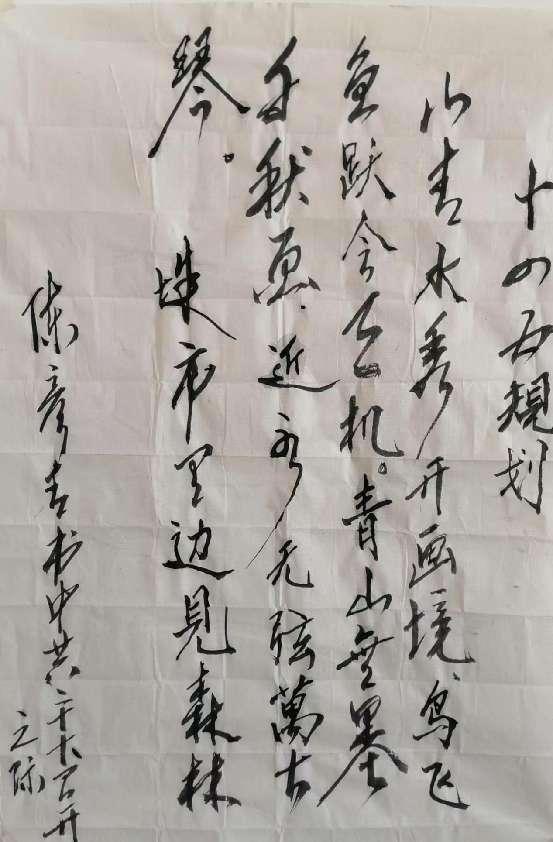 十四五规划
山青水秀开画境、鸟飞
鱼跃会天机。青山無墨
千秋画.近水无弦萬古
琴。
城市里边見森林
陈彦吉书中共二十大召开
之际